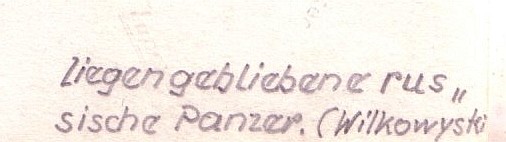 liegengebliebene rus„
sische Panzer. (Wilkowyski